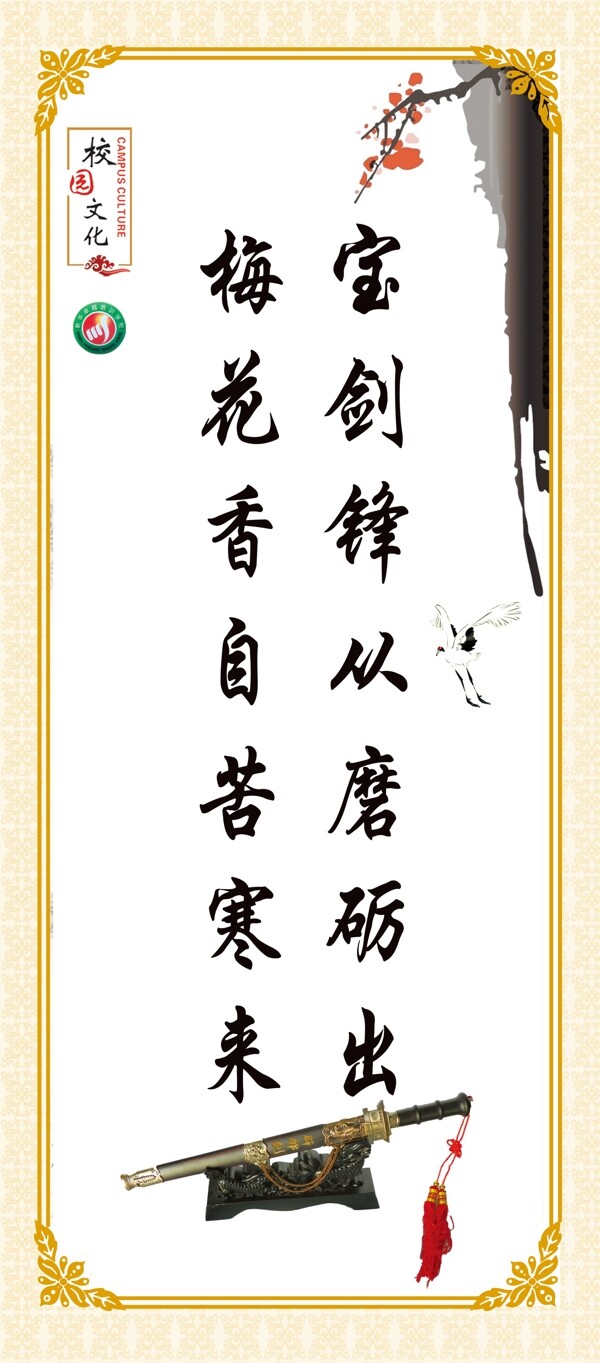 宝剑锋从磨砺出
梅花香自苦寒来
校园文化
CAMPUS CULTURE